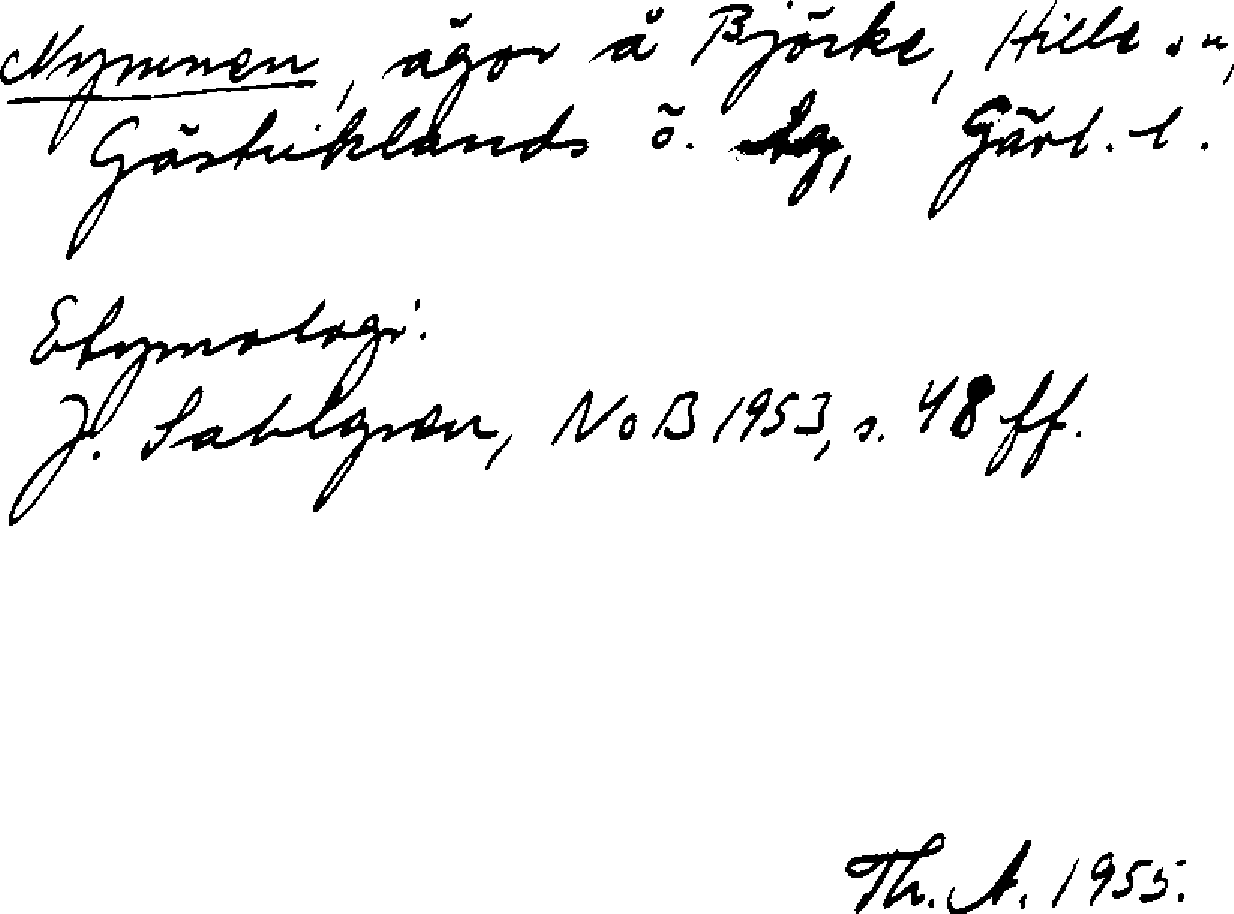 Nymmen, ägor å Björke, Hille sn,
Gästriklands ö. tg, Gävl. l.
Etymologi.
J. Sahlgren, NoB 1953, s. 48 ff.
Th. A. 1955.